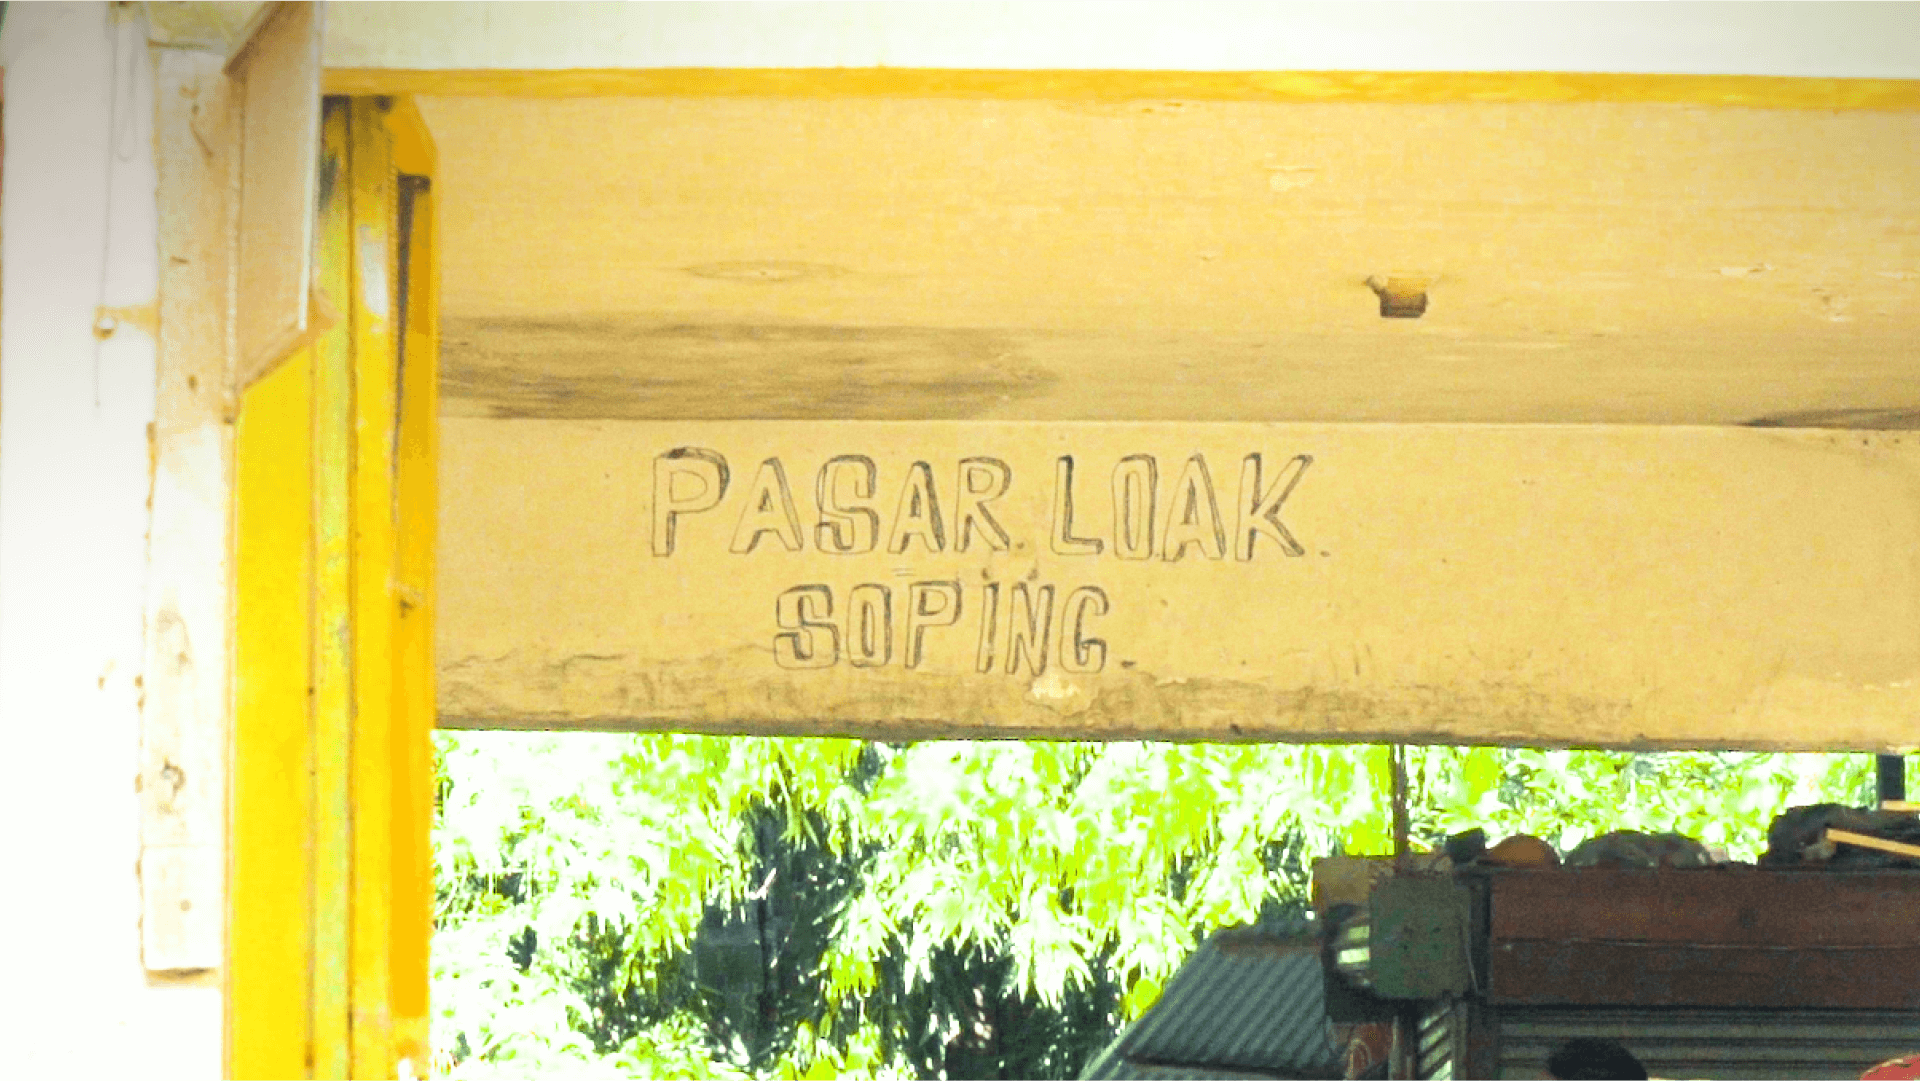 PASAR LOAK.
SOPING.